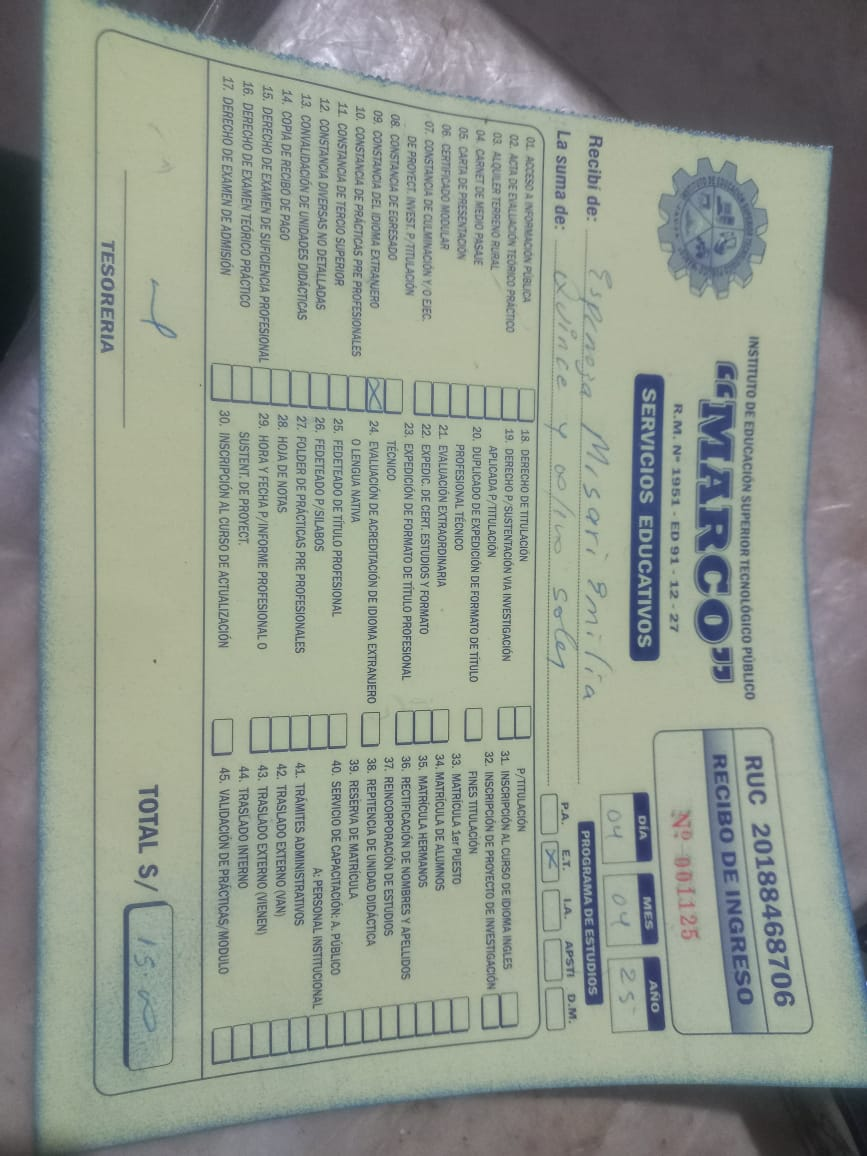 INSTITUTO DE EDUCACIÓN SUPERIOR TECNOLÓGICO PÚBLICO
“MARCO”
R.M. Nº 1951 - ED 91 - 12 - 27
SERVICIOS EDUCATIVOS
RUC 20188468706
RECIBO DE INGRESO
Nº 001125
DÍA MES AÑO
04 04 25
PROGRAMA DE ESTUDIOS
P.A. E.T. I.A. APSTI D.M.
X
Recibí de: Espinoza Misari Emilia
La suma de: Quince y 00/100 soles
01. ACCESO A INFORMACIÓN PÚBLICA
02. ACTA DE EVALUACIÓN TEÓRICO PRÁCTICO
03. ALQUILER TERRENO RURAL
04. CARNET DE MEDIO PASAJE
05. CARTA DE PRESENTACIÓN
06. CERTIFICADO MODULAR
07. CONSTANCIA DE CULMINACIÓN Y/O EJEC.
DE PROYECT. INVEST. P/TITULACIÓN
08. CONSTANCIA DE EGRESADO
09. CONSTANCIA DEL IDIOMA EXTRANJERO X
10. CONSTANCIA DE PRÁCTICAS PRE PROFESIONALES
11. CONSTANCIA DE TERCIO SUPERIOR
12. CONSTANCIA DIVERSAS NO DETALLADAS
13. CONVALIDACIÓN DE UNIDADES DIDÁCTICAS
14. COPIA DE RECIBO DE PAGO
15. DERECHO DE EXAMEN DE SUFICIENCIA PROFESIONAL
16. DERECHO DE EXAMEN TEÓRICO PRÁCTICO
17. DERECHO DE EXAMEN DE ADMISIÓN
18. DERECHO DE TITULACIÓN
19. DERECHO P/SUSTENTACIÓN VIA INVESTIGACIÓN
APLICADA P/TITULACIÓN
20. DUPLICADO DE EXPEDICIÓN DE FORMATO DE TÍTULO
PROFESIONAL TÉCNICO
21. EVALUACIÓN EXTRAORDINARIA
22. EXPEDIC. DE CERT. ESTUDIOS Y FORMATO
23. EXPEDICIÓN DE FORMATO DE TÍTULO PROFESIONAL
TÉCNICO
24. EVALUACIÓN DE ACREDITACIÓN DE IDIOMA EXTRANJERO
O LENGUA NATIVA
25. FEDETEADO DE TÍTULO PROFESIONAL
26. FEDETEADO P/SILABOS
27. FOLDER DE PRÁCTICAS PRE PROFESIONALES
28. HOJA DE NOTAS
29. HORA Y FECHA P/INFORME PROFESIONAL O
SUSTENT. DE PROYECT.
30. INSCRIPCIÓN AL CURSO DE ACTUALIZACIÓN
P/TITULACIÓN
31. INSCRIPCIÓN AL CURSO DE IDIOMA INGLES
32. INSCRIPCIÓN DE PROYECTO DE INVESTIGACIÓN
FINES TITULACIÓN
33. MATRÍCULA 1er PUESTO
34. MATRÍCULA DE ALUMNOS
35. MATRÍCULA HERMANOS
36. RECTIFICACIÓN DE NOMBRES Y APELLIDOS
37. REINCORPORACIÓN DE ESTUDIOS
38. REPITENCIA DE UNIDAD DIDÁCTICA
39. RESERVA DE MATRÍCULA
40. SERVICIO DE CAPACITACIÓN: A. PÚBLICO
A: PERSONAL INSTITUCIONAL
41. TRÁMITES ADMINISTRATIVOS
42. TRASLADO EXTERNO (VAN)
43. TRASLADO EXTERNO (VIENEN)
44. TRASLADO INTERNO
45. VALIDACIÓN DE PRÁCTICAS/MODULO
TESORERIA
TOTAL S/ 15.00